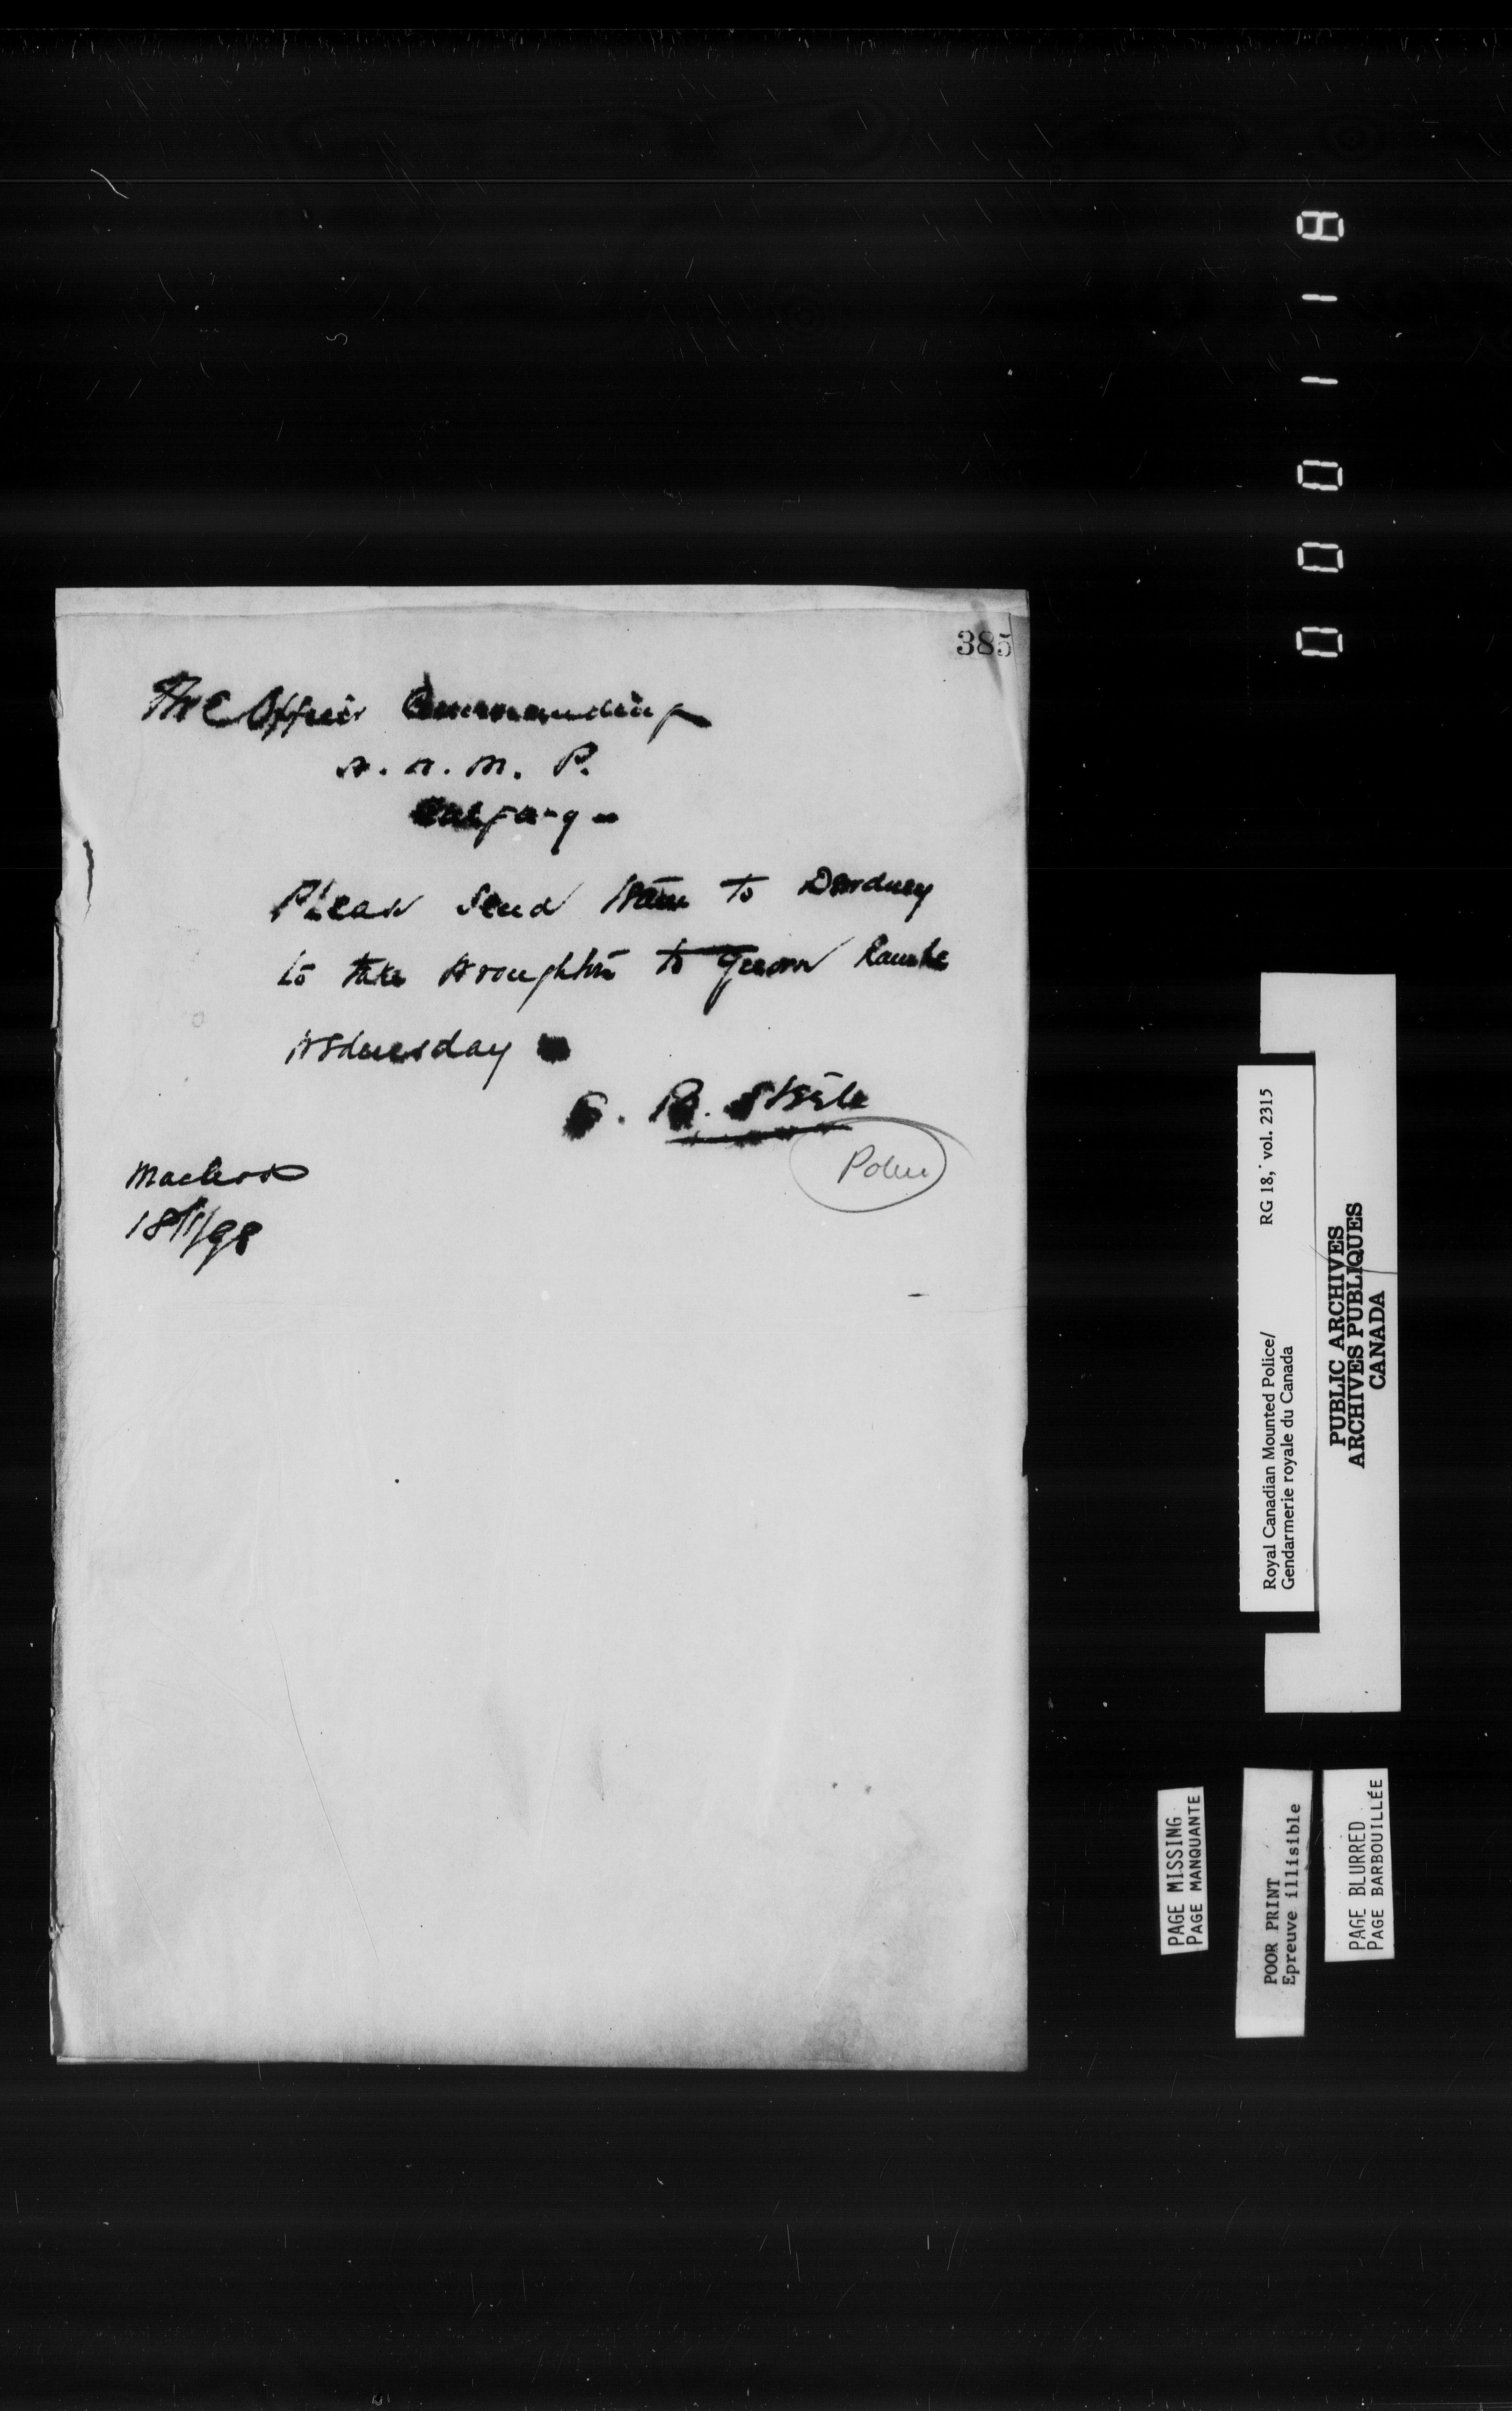 385
The Officer Commanding
N. W. M. P.
Calgary
Please send team to Dewdney
to take Wroughton to Ranche
Wednesday
S. B. Steele
Police
Macleod
18/1/98
0 0 0 1 1 8
RG 18, vol. 2315
Royal Canadian Mounted Police/
Gendarmerie royale du Canada
PUBLIC ARCHIVES
ARCHIVES PUBLIQUES
CANADA
PAGE MISSING
PAGE MANQUANTE
POOR PRINT
Epreuve illisible
PAGE BLURRED
PAGE BARBOUILLÉE